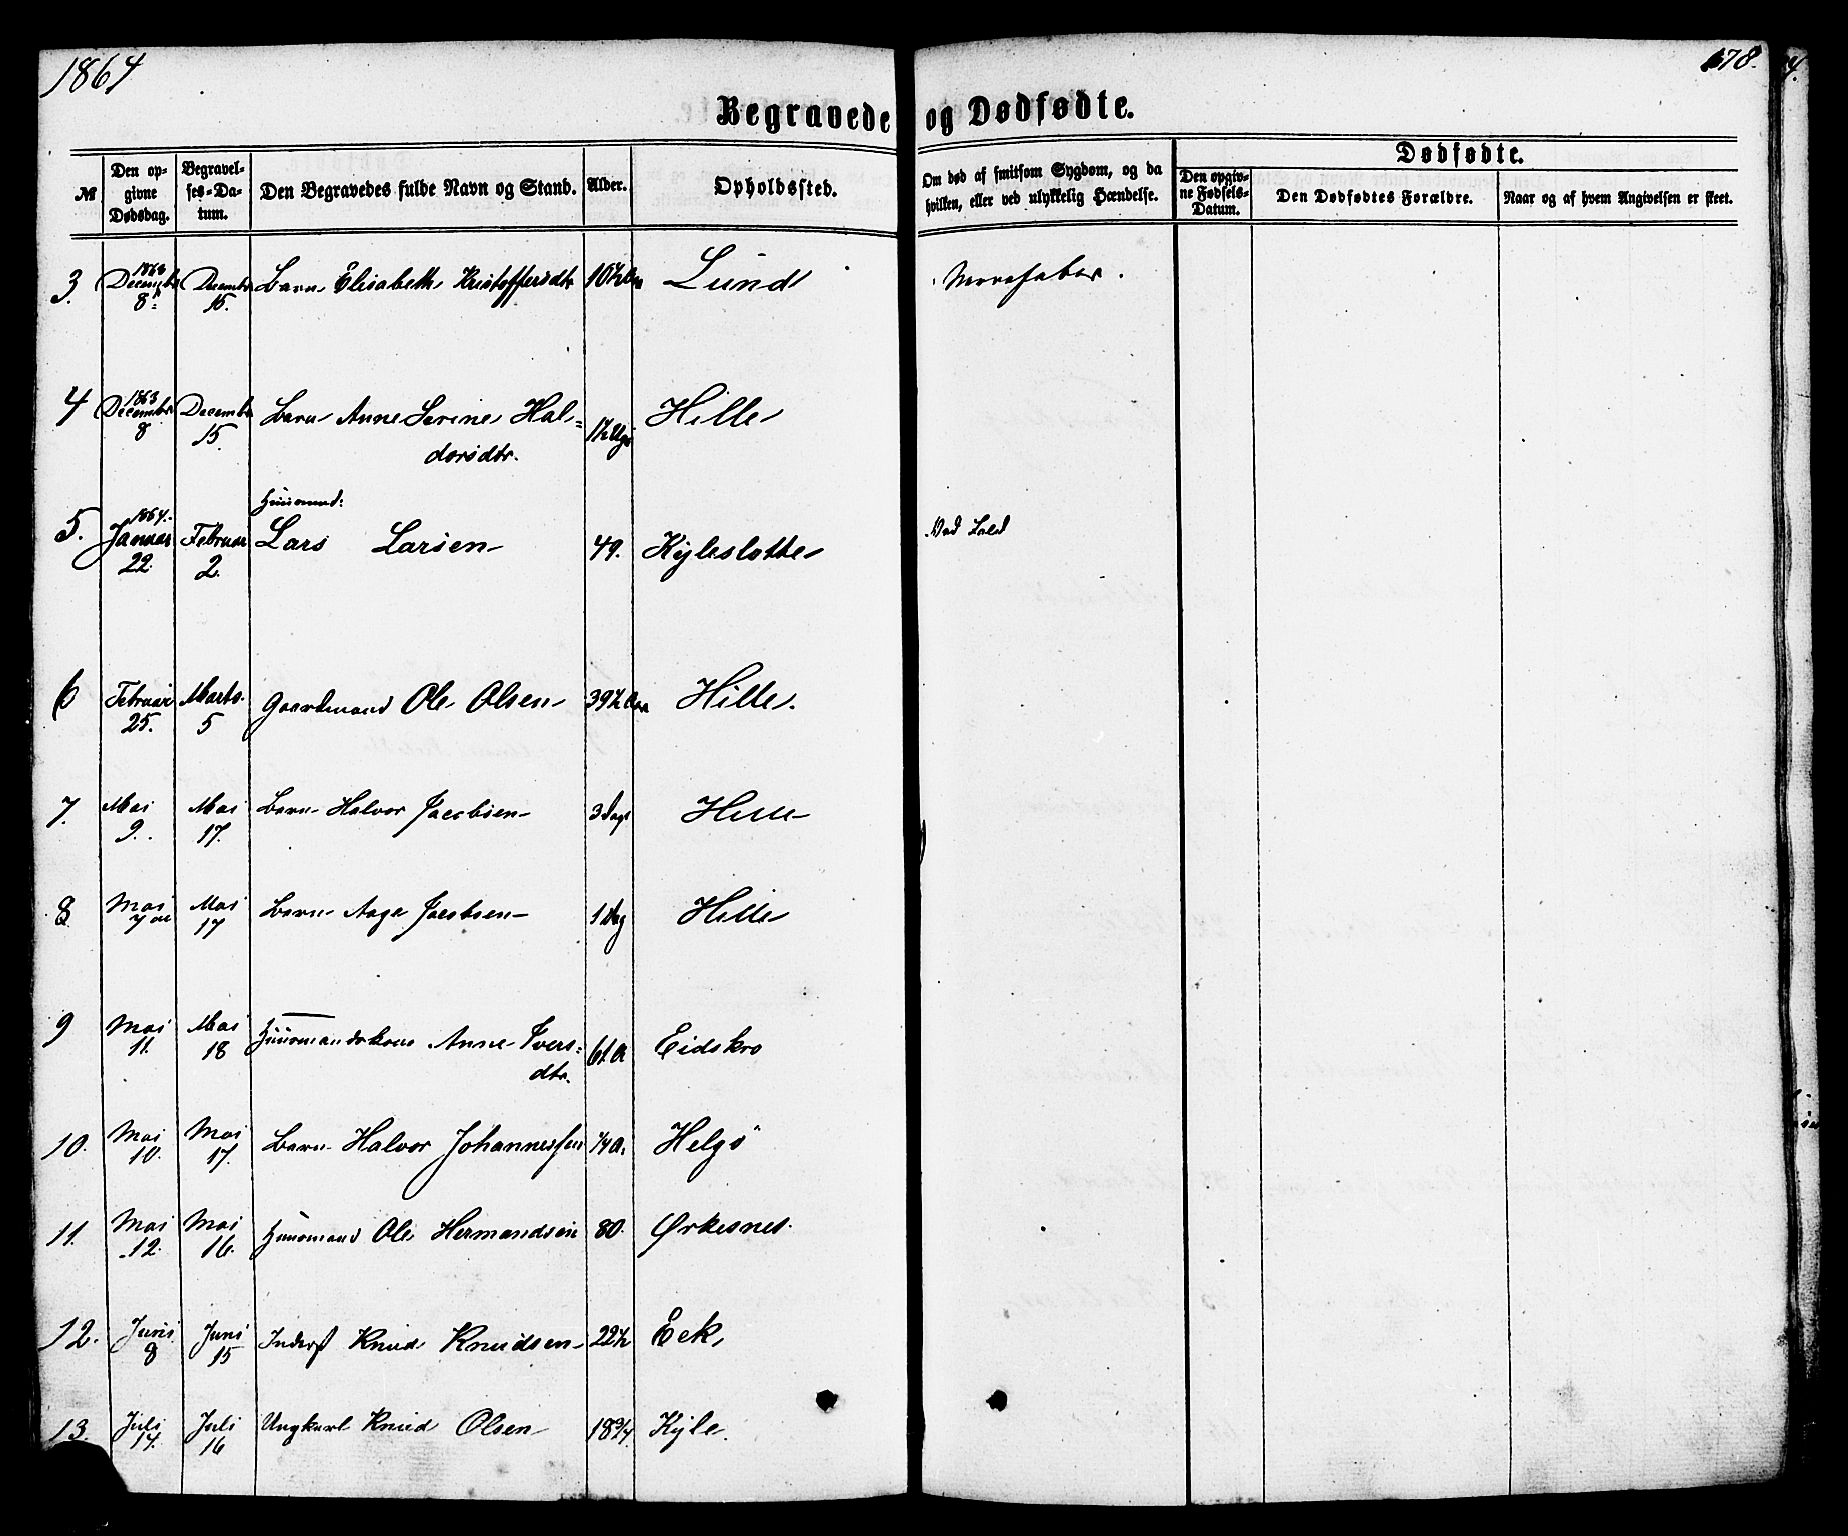 1864
178.
Begravede og Dødfødte.
№
Den op-
givne
Dødsdag.
Begravel-
ses-Da-
tum.
Den Begravedes fulde Navn og Stand.
Alder.
Opholdssted.
Om død af smitsom Sygdom, og da
hvilken, eller ved ulykkelig Hændelse.
Dødfødte.
Den opgiv-
ne Fødsels-
Datum.
Den Dødfødtes Forældre.
Naar og af hvem Angivelsen er skeet.
3. 1863 December 8de December 15. Barn Elisabeth Kristoffersdtr 10½ Lund
4 1863 December 8 December 15. Barn Anne Serine Hal=
dorsdtr. 1½ Uge Hille
Huusmand:
5. 1864. Januar 22. Februar 2. Lars Larsen 49. Kyleslotte Ved
6 Februar 25. Marts 5 Gaardmand Ole Olsen 39½ Aar Hille.
7. Mai 9. Mai 17. Barn Halvor Jacobsen 3 Dage Hille
8 Mai 7 Mai 17 Barn Aage Jacobsen 1 Dag Hille
9 Mai 11. Mai 18 Huusmandskone Anne Ivers=
dtr. 61 A Eidskro
10. Mai 10. Mai 17. Barn Halvor Johannessen ¼ A. Helgø
11. Mai 12. Mai 16. Huusmand Ole Hermandsen 80. Ørkesnes.
12. Juni 8 Juni 15 Inderst Knud Knudsen 22½ Eek
13. Juli 14. Juli 16 Ungkarl Knud Olsen 18¾. Kyle.